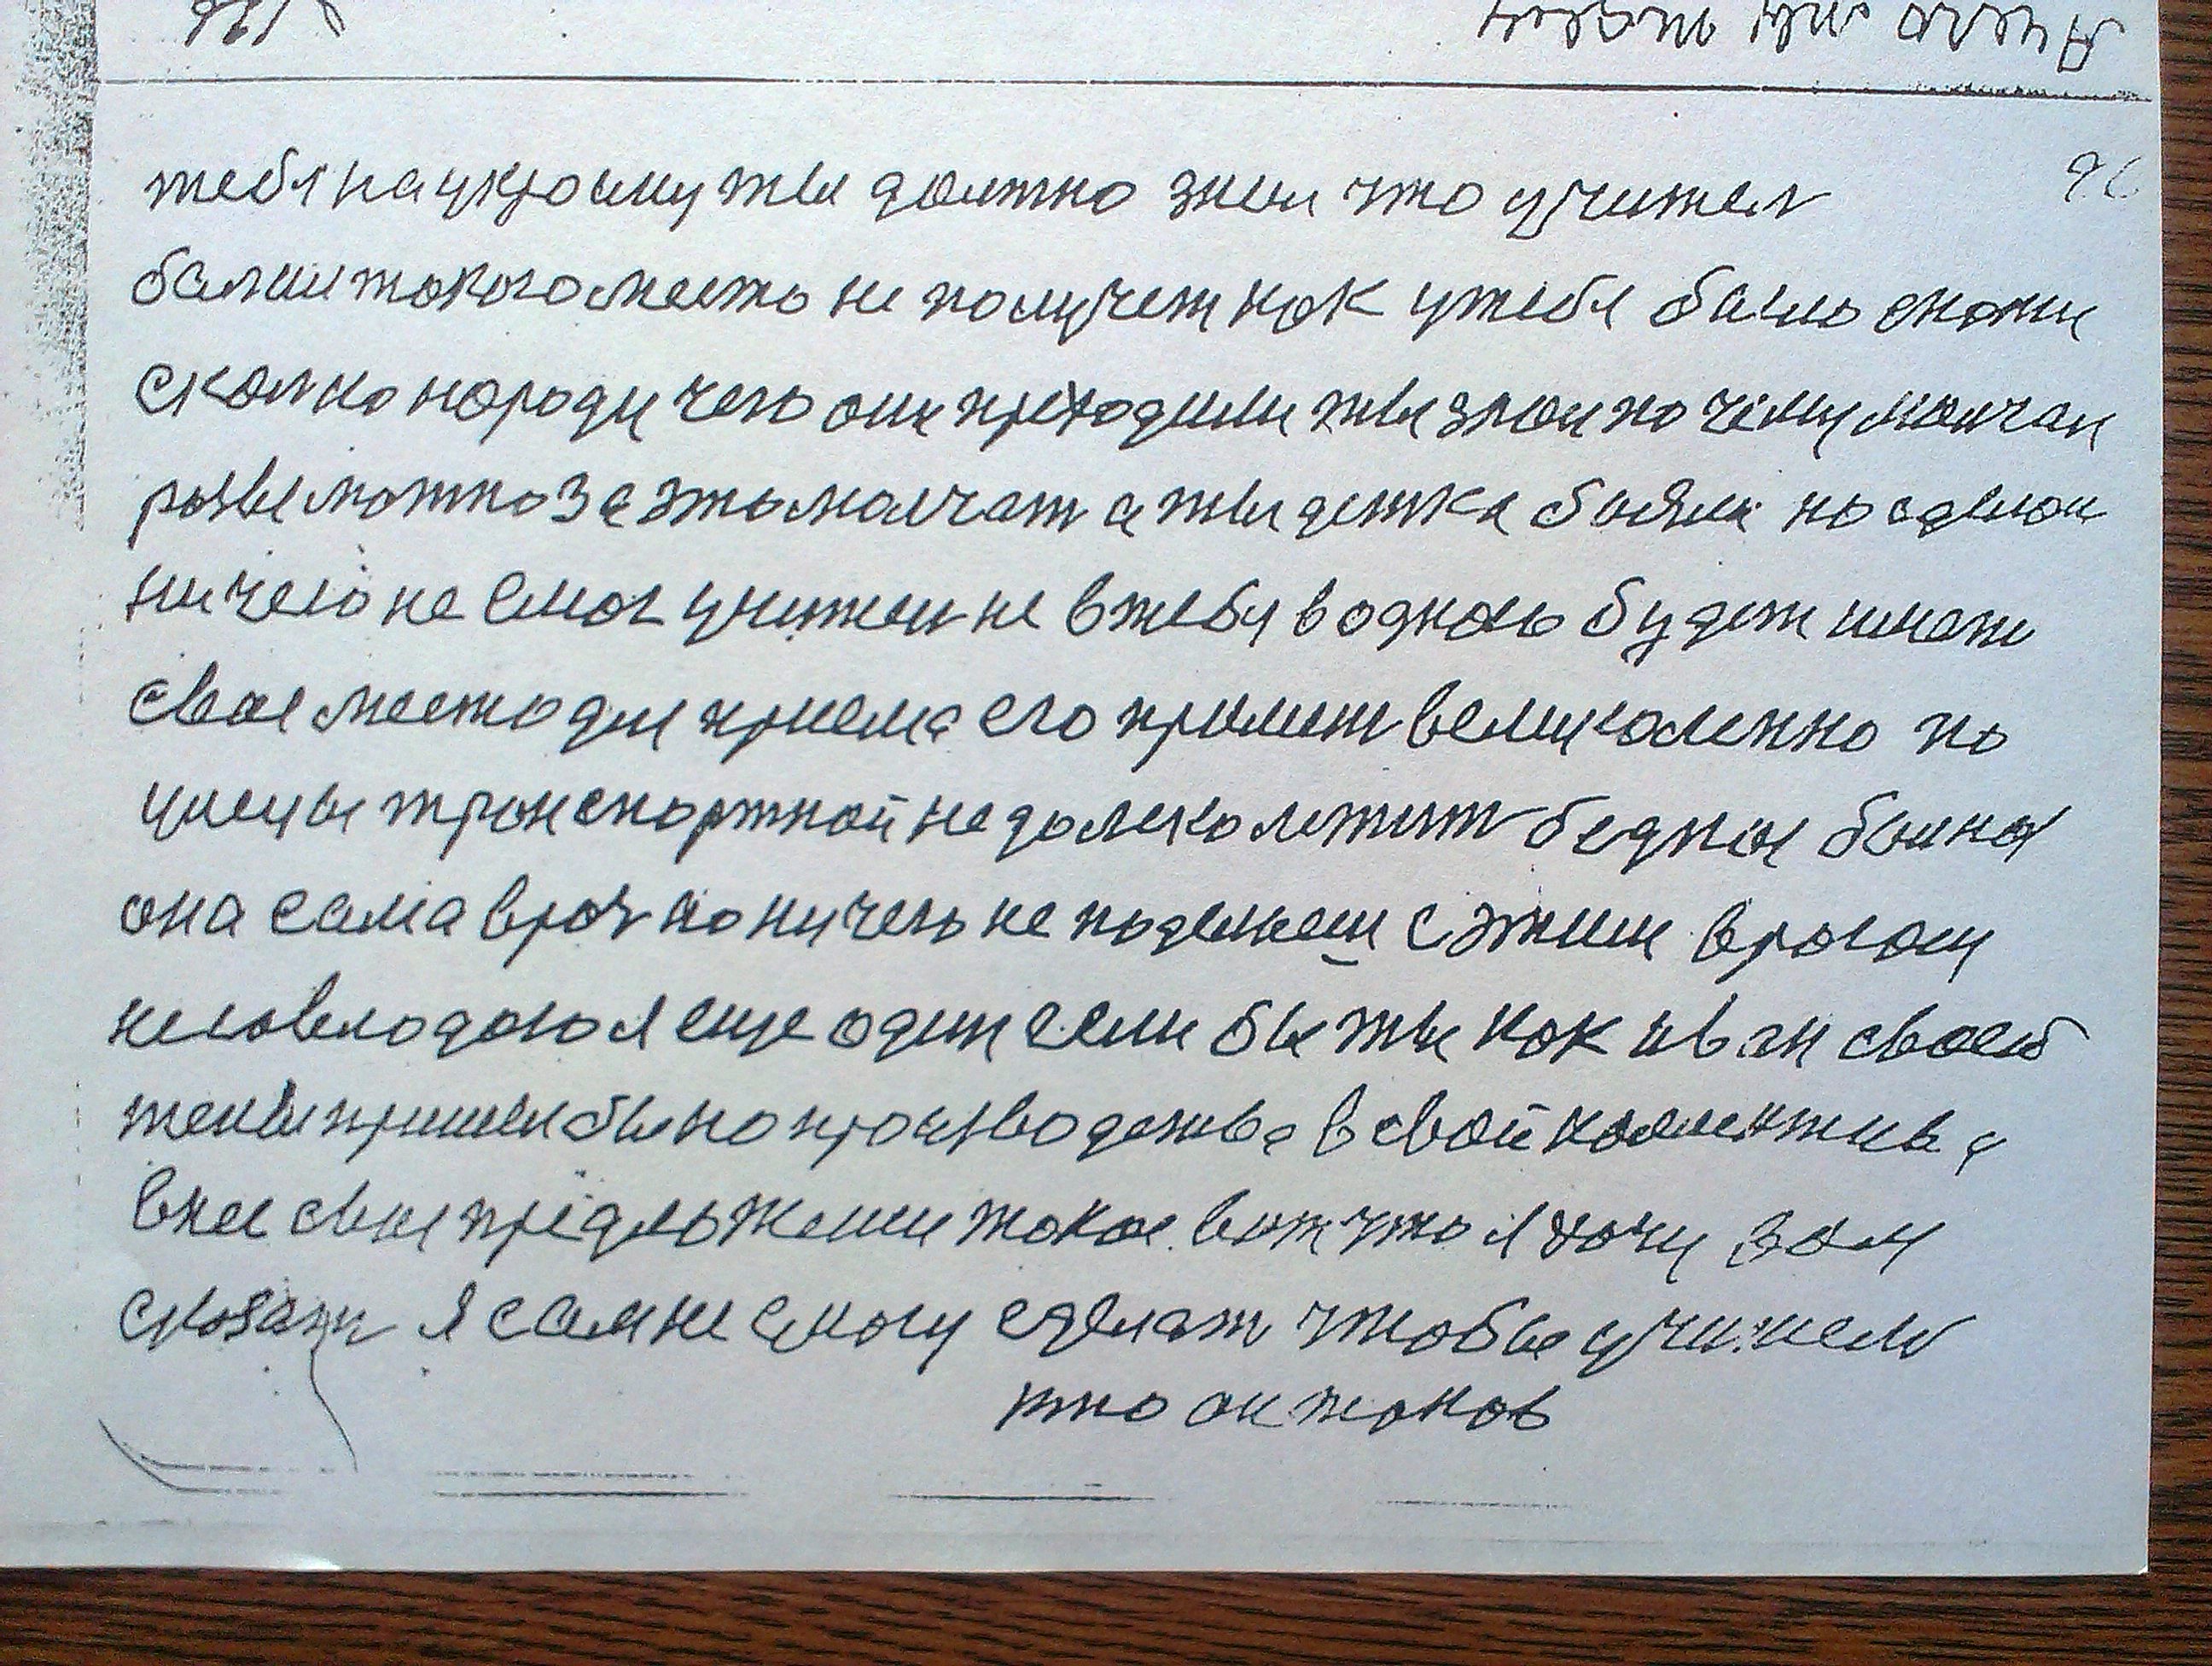 96
тебя на украину ты должно знал что учител
балши токого место не получет как у тебя было скажи
сколко народу чего они преходили ты знаи почему молчал
разве можно за это молчат а ты детка боялся но сделои
ничего не смог учител не в тебя водново будет имет
свое место для приема его примет великоленно по
улицы транспортной не далеко летит бедная болная
она сама врач но ничего не поделаеш с этим врагом
не совладаю я еще один если бы ты как иван своей
жены пришел бы на производства в свой коллектив а
внес свои предложени такое вот что я хочу вам
сказать я сам не смогу сделат чтобы учителю